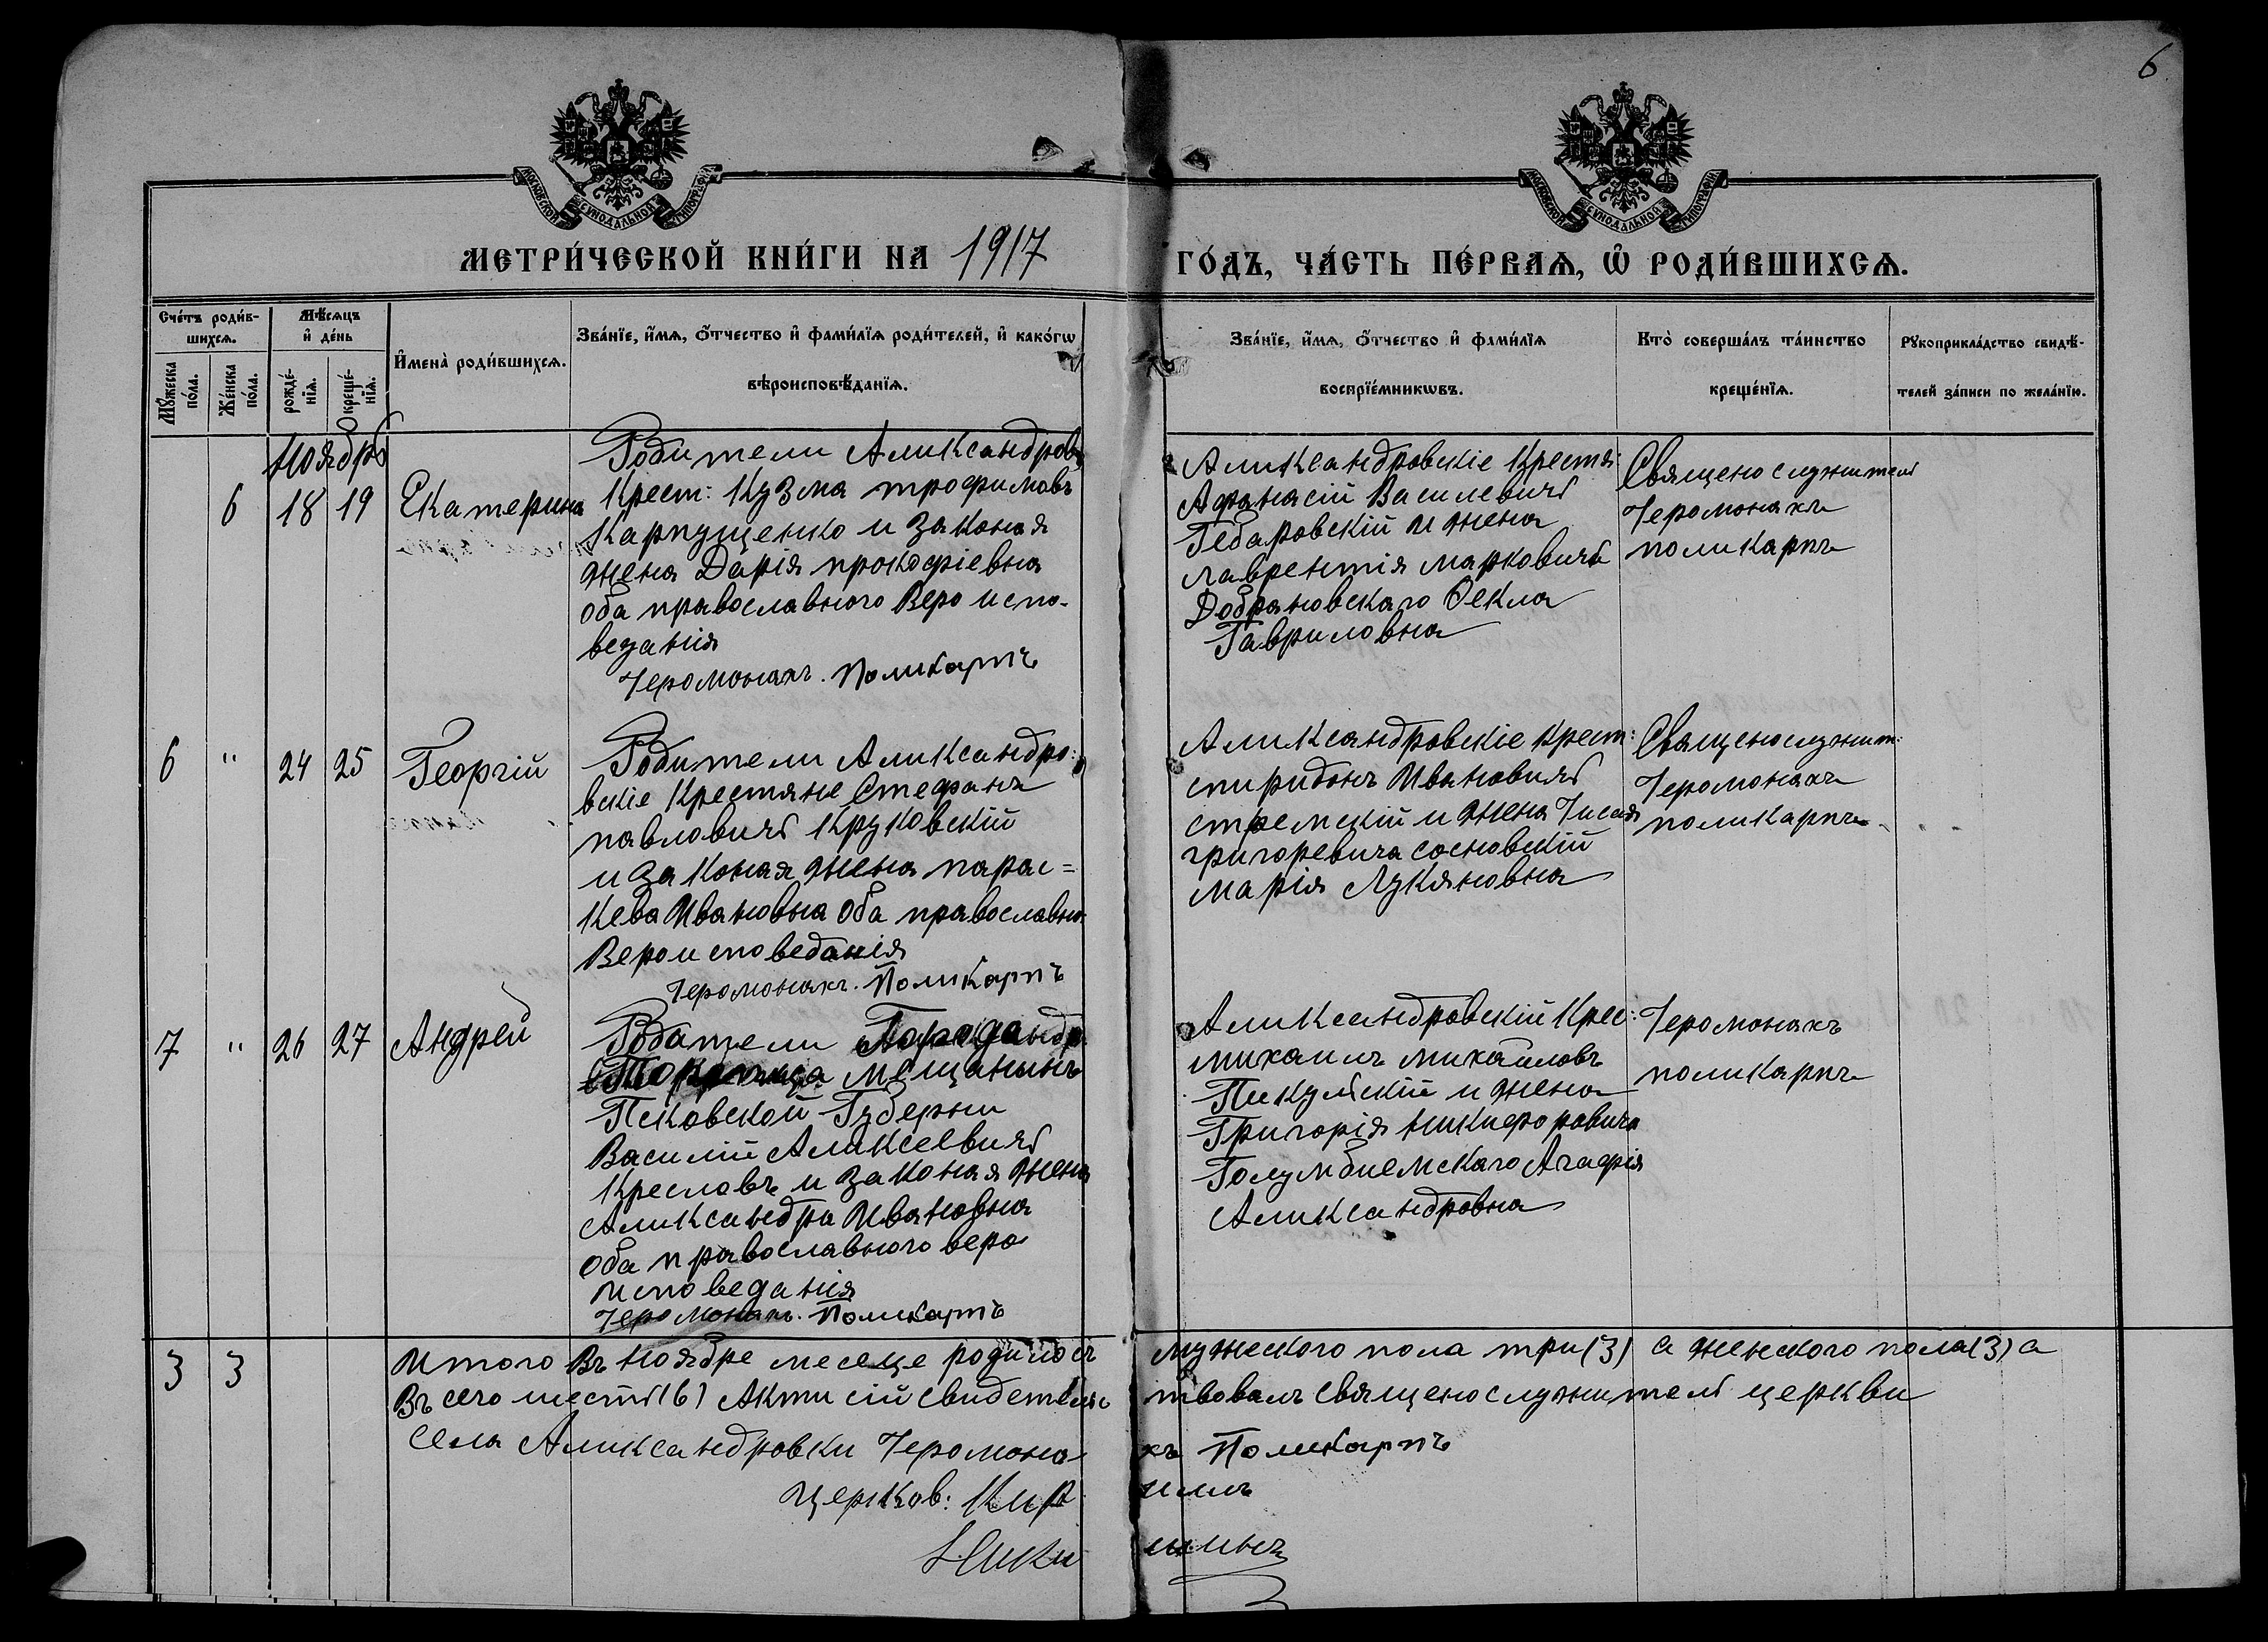 6
МОСКОВСКОЙ СУНОДАЛЬНОЙ ТИПОГРАФІИ
МОСКОВСКОЙ СУНОДАЛЬНОЙ ТИПОГРАФІИ
МЕТРИ́ЧЕСКОЙ КНИ́ГИ НА 1917 ГО́ДЪ, ЧА́СТЬ ПЕ́РВАѦ, Ѡ РОДИ́ВШИХСѦ.
Сче́тъ роди́в-
шихсѧ.
Мꙋ́жеска
по́ла.
Же́нска
по́ла.
Мѣ́сѧцъ
и҆ де́нь
рожде́-
нїѧ.
креще́-
нїѧ.
И҆мена̀ роди́вшихсѧ.
Зва́нїе, и҆́мѧ, ѻ҆́тчество и҆ фами́лїѧ роди́телей, и҆ како́гѡ
вѣроисповѣ́данїѧ.
Зва́нїе, и҆́мѧ, ѻ҆́тчество и҆ фами́лїѧ
воспрїе́мникѡвъ.
Кто̀ соверша́лъ та́инство
креще́нїѧ.
Рꙋкоприкла́дство свидѣ́-
телей за́писи по жела́нїю.
Ноябрь
6 18 19 Екатерина
Родители Алиександров
Крест: Кузма трофимовъ
Карпущенко и законая
жена Дарія прокофіевна
оба православного Веро испо-
веданія
Іеромонахъ. Поликарпъ
Алиександровскіе Крестя:
Афанасій Василевичъ
Гебаровскій и жена
лаврентія марковича
Добрановскаго Ѳекла
Гавриловна
Священослужитель
Іеромонахъ
поликарпъ
6 " 24 25 Георгій
Родители Алиександро:
вскіе Крестяне Стефанъ
павловичъ Круковскій
и законая жена парас=
кева Ивановна оба православно
Вероисповеданія
Іеромонахъ. Поликарпъ
Алиександровскіе Крест:
спиридонъ Ивановичъ
стремскій и жена
григоревича сосновскій
марія Лукяновна
Священослужит:
Іеромонахъ
поликарпъ
7 " 26 27 Андрей
Родители
мещанинъ
Псковской Губерни
Василій Алиексеевичъ
Кресловъ и законая жена
Алиександра Ивановна
оба православного веро
исповеданія
Іеромонахъ. Поликарпъ
Алиександровскій Крес:
михаилъ михайловъ
Пикульскій и жена
Григорія никифоровича
Голумбиемскаго Агафія
Алиександровна
Іеромонахъ
поликарпъ
3 3 Итого Въ ноябре месеце родилось мужеского пола три (3) а женского пола (3) а
Въ сего шесть (6) Акти сій свидетельствовалъ священослужитель церкви
Села Алиександровки Іеромонахъ Поликарпъ
церков: